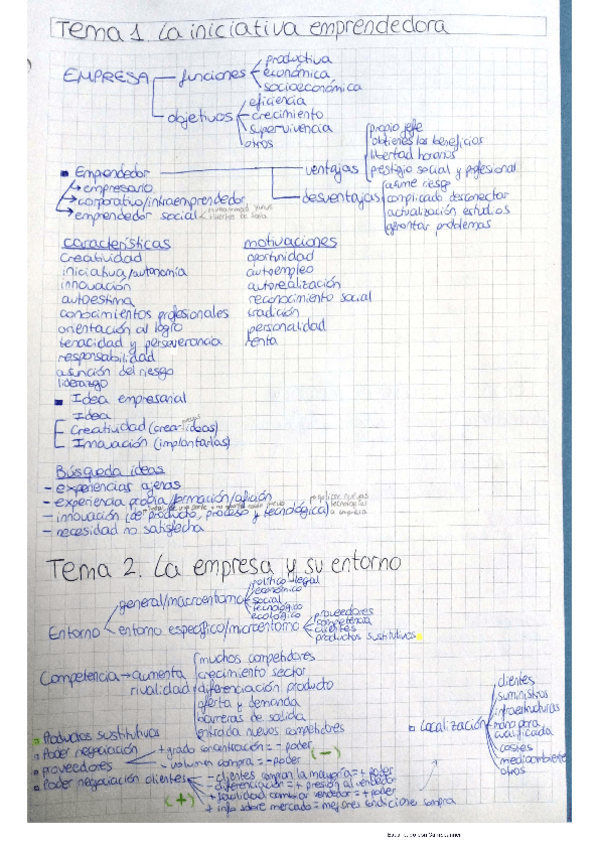 Tema 1. La iniciativa emprendedora
EMPRESA
funciones
productiva
económica
socioeconómica
objetivos
eficiencia
crecimiento
supervivencia
otros
Emprendedor
empresario
corporativo/intraemprendedor
emprendedor social
ventajas
propio jefe
obtienes los beneficios
libertad horarios
pestigio social y profesional
desventajas
asume riesgo
complicado desconectar
actualización estudios
afrontar problemas
características
creatividad
iniciativa/autonomía
innovación
autoestima
conocimientos profesionales
orientación al logro
tenacidad y perseverancia
responsabilidad
asunción del riesgo
liderazgo
motivaciones
oportunidad
autoempleo
autorealización
reconocimiento social
tradición
personalidad
renta
Idea empresarial
Idea
Creatividad (crear ideas)
Innovación (implantarlas)
Búsqueda ideas
- experiencias ajenas
- experiencia propia/formación/afición
- innovación (de producto, proceso y tecnológica)
- necesidad no satisfecha
Tema 2. La empresa y su entorno
Entorno
general/macroentorno
político-legal
económico
social
tecnológico
ecológico
entorno específico/microentorno
proveedores
competencia
clientes
productos sustitutivos
Competencia → aumenta rivalidad
muchos competidores
crecimiento sector
diferenciación producto
oferta y demanda
barreras de salida
entrada nuevos competidores
Productos sustitutivos
Poder negociación proveedores
+ grado concentración = - poder
- volumen compra = - poder
(-)
Poder negociación clientes
(+)
- clientes compran la mayoría = + poder
- diferenciación = + presión al vendedor
+ facilidad cambiar vendedor = + poder
+ info sobre mercado = mejores condiciones compra
Localización
clientes
suministros
infraestructuras
mano obra
cualificada
costes
medioambiente
otros